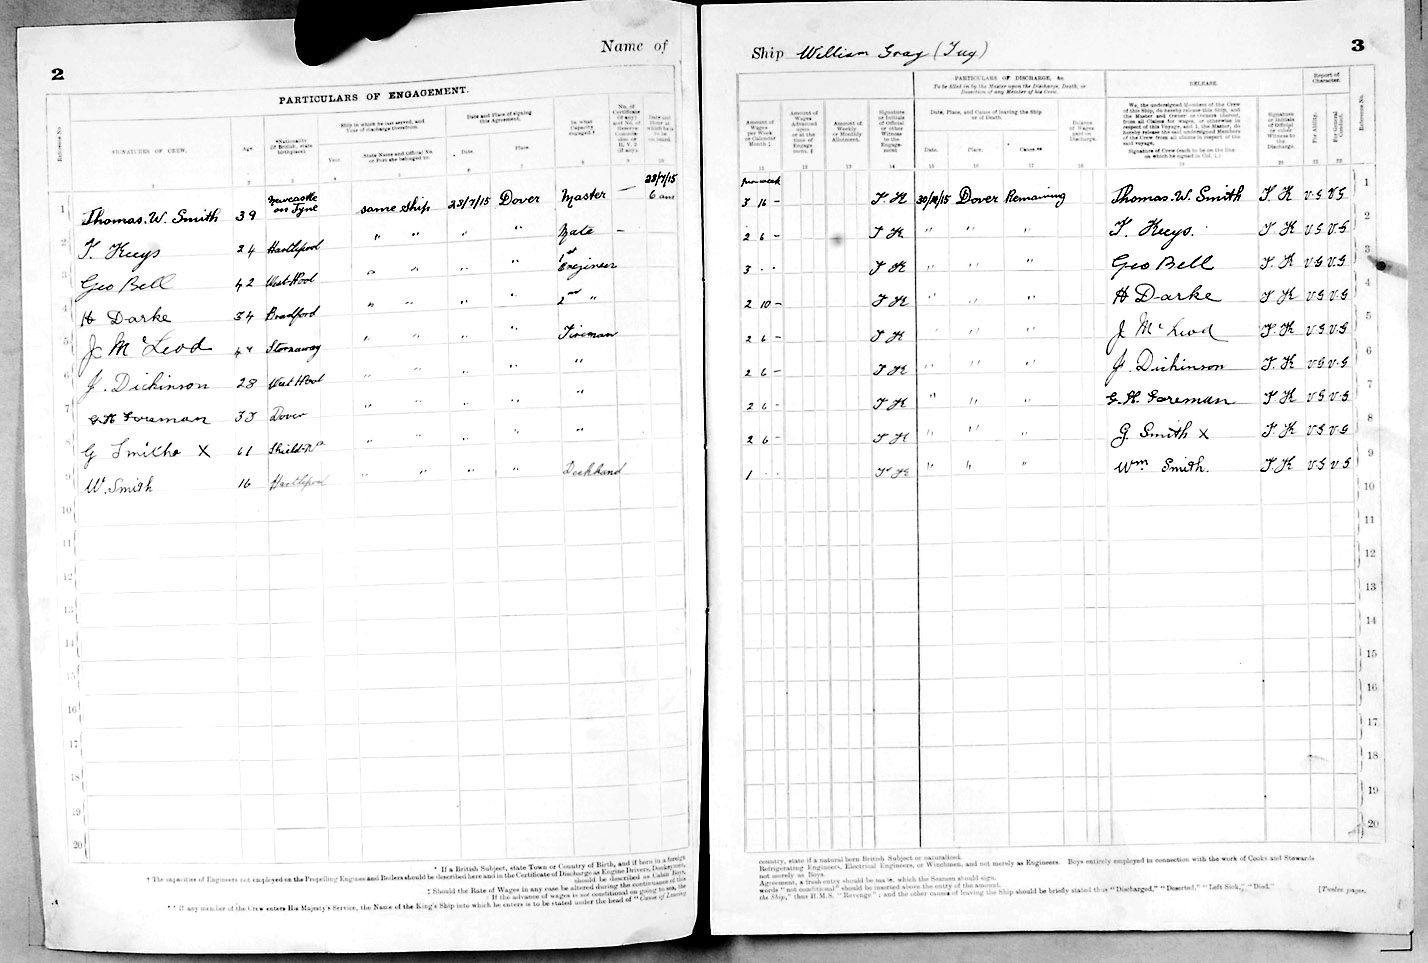 2
Name of
PARTICULARS OF ENGAGEMENT.
Reference No.
SIGNATURES OF CREW.
Age.
*Nationality (If British, state birthplace).
Ship in which he last served, and Year of discharge therefrom.
Year.
State Name and Official No. or Port she belonged to.
Date and Place of signing this Agreement.
Date.
Place.
In what Capacity engaged.†
Date and Hour at which he is to be on board.
1 2 3 4 5 6 7 8 9 10
28/7/15
1 Thomas. W. Smith 39 Newcastle on Tyne same ship 28/7/15 Dover Master — 6
2 T. Kuys 24 Hartlepool " " " " Mate —
3 Geo Bell 42 West Hpool " " " " 1st Engineer
4 H Darke 34 Bradford " " " " 2nd "
5 J McLeod Stornaway " " " " Fireman
6 J. Dickinson 28 West Hpool " " " " "
7 G H Foreman Dover " " " " "
8 G Smith X 61 " " " " "
9 W. Smith 16 Hartlepool " " " " Deckhand
10
11
12
13
14
15
16
17
18
19
20
* If a British Subject, state Town or Country of Birth, and if born in a foreign
† The capacities of Engineers not employed on the Propelling Engines and Boilers should be described here and in the Certificate of Discharge as Engine Drivers, Donkeymen,
should be described as Cabin Boys.
‡ Should the Rate of Wages in any case be altered during the continuance of this
If the advance of wages is not conditional on going to sea, the
** If any member of the Crew enters His Majesty's Service, the Name of the King's Ship into which he enters is to be stated under the head of "Cause of Leaving
Ship William Gray (Tug)
3
PARTICULARS OF DISCHARGE, &c.
To be filled in by the Master upon the Discharge, Death, or Desertion of any Member of his Crew.
RELEASE.
Report of Character.
Amount of Wages per Week or Calendar Month ‡
Amount of Wages Advanced upon or at the time of Engagement. ‡
Amount of Weekly or Monthly Allotment.
Signature or Initials of Official or other Witness to the Engagement
Date, Place, and Cause of leaving the Ship or of Death.
Date.
Place.
Cause**
Balance of Wages paid on Discharge.
We, the undersigned Members of the Crew of this Ship, do hereby release this Ship, and the Master and Owner or Owners thereof, from all Claims for wages, or otherwise in respect of this Voyage, and I, the Master, do hereby release the said undersigned Members of the Crew from all claims in respect of the said voyage.
Signature of Crew (each to be on the line on which he signed in Col. 1.)
Signature or Initials of Official or other Witness to the Discharge.
For Ability.
For General Conduct.
Reference No.
11 12 13 14 15 16 17 18 19 20
per week
3 16 - T K Dover Remaining Thomas. W. Smith T. K V.G V.G 1
2 6 - T K " " " T. Kuys. T K V.G V.G 2
3 . . T K " " " Geo Bell T. K V.G V.G 3
2 10 - T K " " " H Darke T K V.G V.G 4
2 6 - T K " " " J McLeod T. K V.G V.G 5
2 6 - T K " " " J. Dickinson T. K V.G V.G 6
2 6 - T K " " " G. H. Foreman T K V.G V.G 7
2 6 - T K " " " G. Smith X T. K V.G V.G 8
1 . . T K " " " Wm Smith. T K V.G V.G 9
10
11
12
13
14
15
16
17
18
19
20
country, state if a natural born British Subject or naturalised.
Refrigerating Engineers, Electrical Engineers, or Winchmen, and not merely as Engineers. Boys entirely employed in connection with the work of Cooks and Stewards
not merely as Boys.
Agreement, a fresh entry should be made, which the Seamen should sign.
words "not conditional" should be inserted above the entry of the amount.
the Ship," thus H.M.S. "Revenge"; and the other causes of leaving the Ship should be briefly stated thus "Discharged," "Deserted," "Left Sick," "Died."
[Twelve pages.